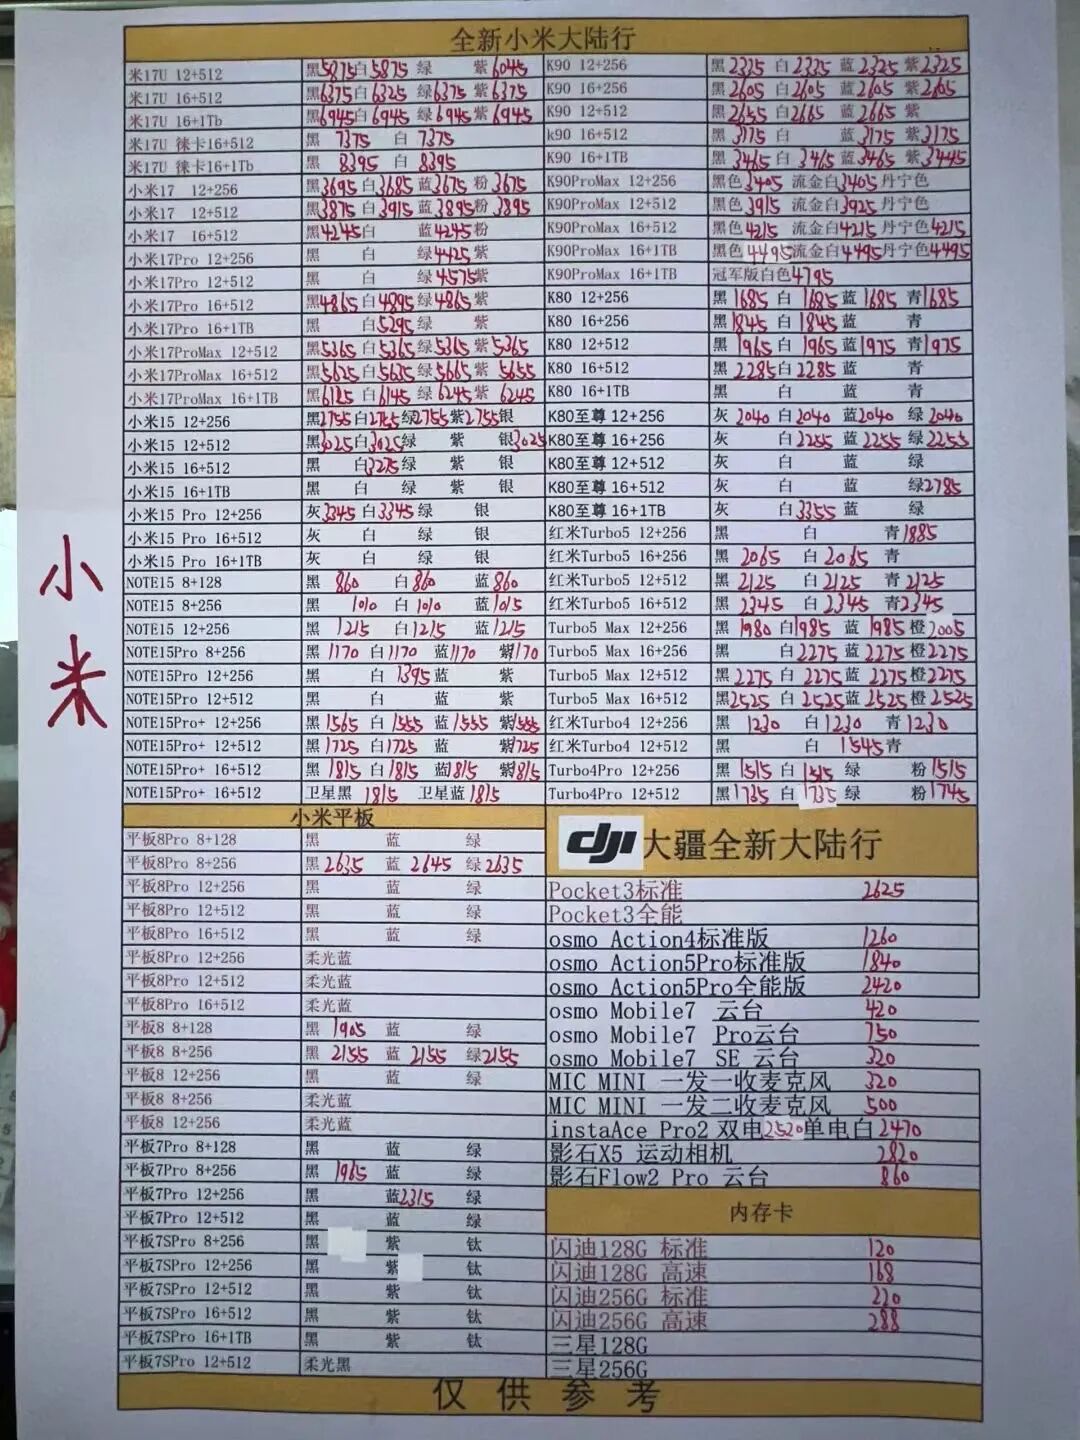 全新小米大陆行
米17U 12+512 黑5875白5875 绿 紫6045
米17U 16+512 黑6375白6325 绿6375紫6375
米17U 16+1Tb 黑6945白6945 绿6945紫6945
米17U 徕卡16+512 黑 7375 白 7375
米17U 徕卡16+1Tb 黑 8395 白 8395
小米17 12+256 黑3695白3685蓝3675粉3675
小米17 12+512 黑3875白3915蓝3895粉3895
小米17 16+512 黑4245白 蓝4245粉
小米17Pro 12+256 黑 白 绿4425紫
小米17Pro 12+512 黑 白 绿4575紫
小米17Pro 16+512 黑4865白4895绿4865紫
小米17Pro 16+1TB 黑 白5295绿 紫
小米17ProMax 12+512 黑5365白5365绿5365紫5365
小米17ProMax 16+512 黑5625白5635绿5665紫5655
小米17ProMax 16+1TB 黑6125白6145绿6245紫6245
小米15 12+256 黑2755白2755绿2755紫2755银
小米15 12+512 黑3025白3025绿 紫 银3025
小米15 16+512 黑 白3275绿 紫 银
小米15 16+1TB 黑 白 绿 紫 银
小米15 Pro 12+256 灰3345白3345绿 银
小米15 Pro 16+512 灰 白 绿 银
小米15 Pro 16+1TB 灰 白 绿 银
NOTE15 8+128 黑 860 白860 蓝860
NOTE15 8+256 黑 1010 白1010 蓝1015
NOTE15 12+256 黑 1215 白1215 蓝1215
NOTE15Pro 8+256 黑 1170 白1170 蓝1170 紫1170
NOTE15Pro 12+256 黑 白 1395蓝 紫
NOTE15Pro 12+512 黑 白 蓝 紫
NOTE15Pro+ 12+256 黑1565 白1555 蓝1555 紫1555
NOTE15Pro+ 12+512 黑1725 白1725 蓝 紫1725
NOTE15Pro+ 16+512 黑1815 白1815 蓝1815 紫1815
NOTE15Pro+ 16+512 卫星黑 1815 卫星蓝1815
K90 12+256 黑2325 白2325 蓝2325紫2325
K90 16+256 黑2605 白2605 蓝2605紫2605
K90 12+512 黑2655 白2665 蓝2665紫
k90 16+512 黑3175 白 蓝3175紫3175
K90 16+1TB 黑3465 白3465 蓝3465紫3445
K90ProMax 12+256 黑色3405 流金白3405丹宁色
K90ProMax 12+512 黑色3915 流金白3925丹宁色
K90ProMax 16+512 黑色4215 流金白4215丹宁色4215
K90ProMax 16+1TB 黑色4495流金白4495丹宁色4495
K90ProMax 16+1TB 冠军版白色4795
K80 12+256 黑1685 白 1685蓝1685 青1685
K80 16+256 黑1845 白1845蓝 青
K80 12+512 黑1965 白1965蓝1975青1975
K80 16+512 黑2285白2285蓝 青
K80 16+1TB 黑 白 蓝 青
K80至尊 12+256 灰 2040 白2040 蓝2040 绿2040
K80至尊 16+256 灰 白2255 蓝2255 绿2255
K80至尊 12+512 灰 白 蓝 绿
K80至尊 16+512 灰 白 蓝 绿2785
K80至尊 16+1TB 灰 白3355 蓝 绿
红米Turbo5 12+256 黑 白 青1885
红米Turbo5 16+256 黑 2065 白2065 青
红米Turbo5 12+512 黑 2125 白2125 青2125
红米Turbo5 16+512 黑 2345 白2345 青2345
Turbo5 Max 12+256 黑1980 白1985 蓝1985橙2005
Turbo5 Max 16+256 黑 白2275 蓝2275橙2275
Turbo5 Max 12+512 黑2275 白2275 蓝2275橙2275
Turbo5 Max 16+512 黑2525 白2525蓝2525橙2525
红米Turbo4 12+256 黑 1230 白1230 青1230
红米Turbo4 12+512 黑 白 1545青
Turbo4Pro 12+256 黑1515 白1515 绿 粉1515
Turbo4Pro 12+512 黑1735 白1735 绿 粉1745
小米
小米平板
平板8Pro 8+128 黑 蓝 绿
平板8Pro 8+256 黑2635 蓝2645 绿2635
平板8Pro 12+256 黑 蓝 绿
平板8Pro 12+512 黑 蓝 绿
平板8Pro 16+512 黑 蓝 绿
平板8Pro 12+256 柔光蓝
平板8Pro 12+512 柔光蓝
平板8Pro 16+512 柔光蓝
平板8 8+128 黑 1905 蓝 绿
平板8 8+256 黑 2155 蓝2155 绿2155
平板8 12+256 黑 蓝 绿
平板8 8+256 柔光蓝
平板8 12+256 柔光蓝
平板7Pro 8+128 黑 蓝 绿
平板7Pro 8+256 黑 1965 蓝 绿
平板7Pro 12+256 黑 蓝2315 绿
平板7Pro 12+512 黑 蓝 绿
平板7SPro 8+256 黑 紫 钛
平板7SPro 12+256 黑 紫 钛
平板7SPro 12+512 黑 紫 钛
平板7SPro 16+512 黑 紫 钛
平板7SPro 16+1TB 黑 紫 钛
平板7SPro 12+512 柔光黑
dji 大疆全新大陆行
Pocket3标准 2625
Pocket3全能
osmo Action4标准版 1260
osmo Action5Pro标准版 1840
osmo Action5Pro全能版 2420
osmo Mobile7 云台 420
osmo Mobile7 Pro云台 750
osmo Mobile7 SE 云台 320
MIC MINI 一发一收麦克风 320
MIC MINI 一发二收麦克风 500
instaAce Pro2 双电2520单电白2470
影石X5 运动相机 2820
影石Flow2 Pro 云台 860
内存卡
闪迪128G 标准 120
闪迪128G 高速 168
闪迪256G 标准 220
闪迪256G 高速 288
三星128G
三星256G
仅供参考